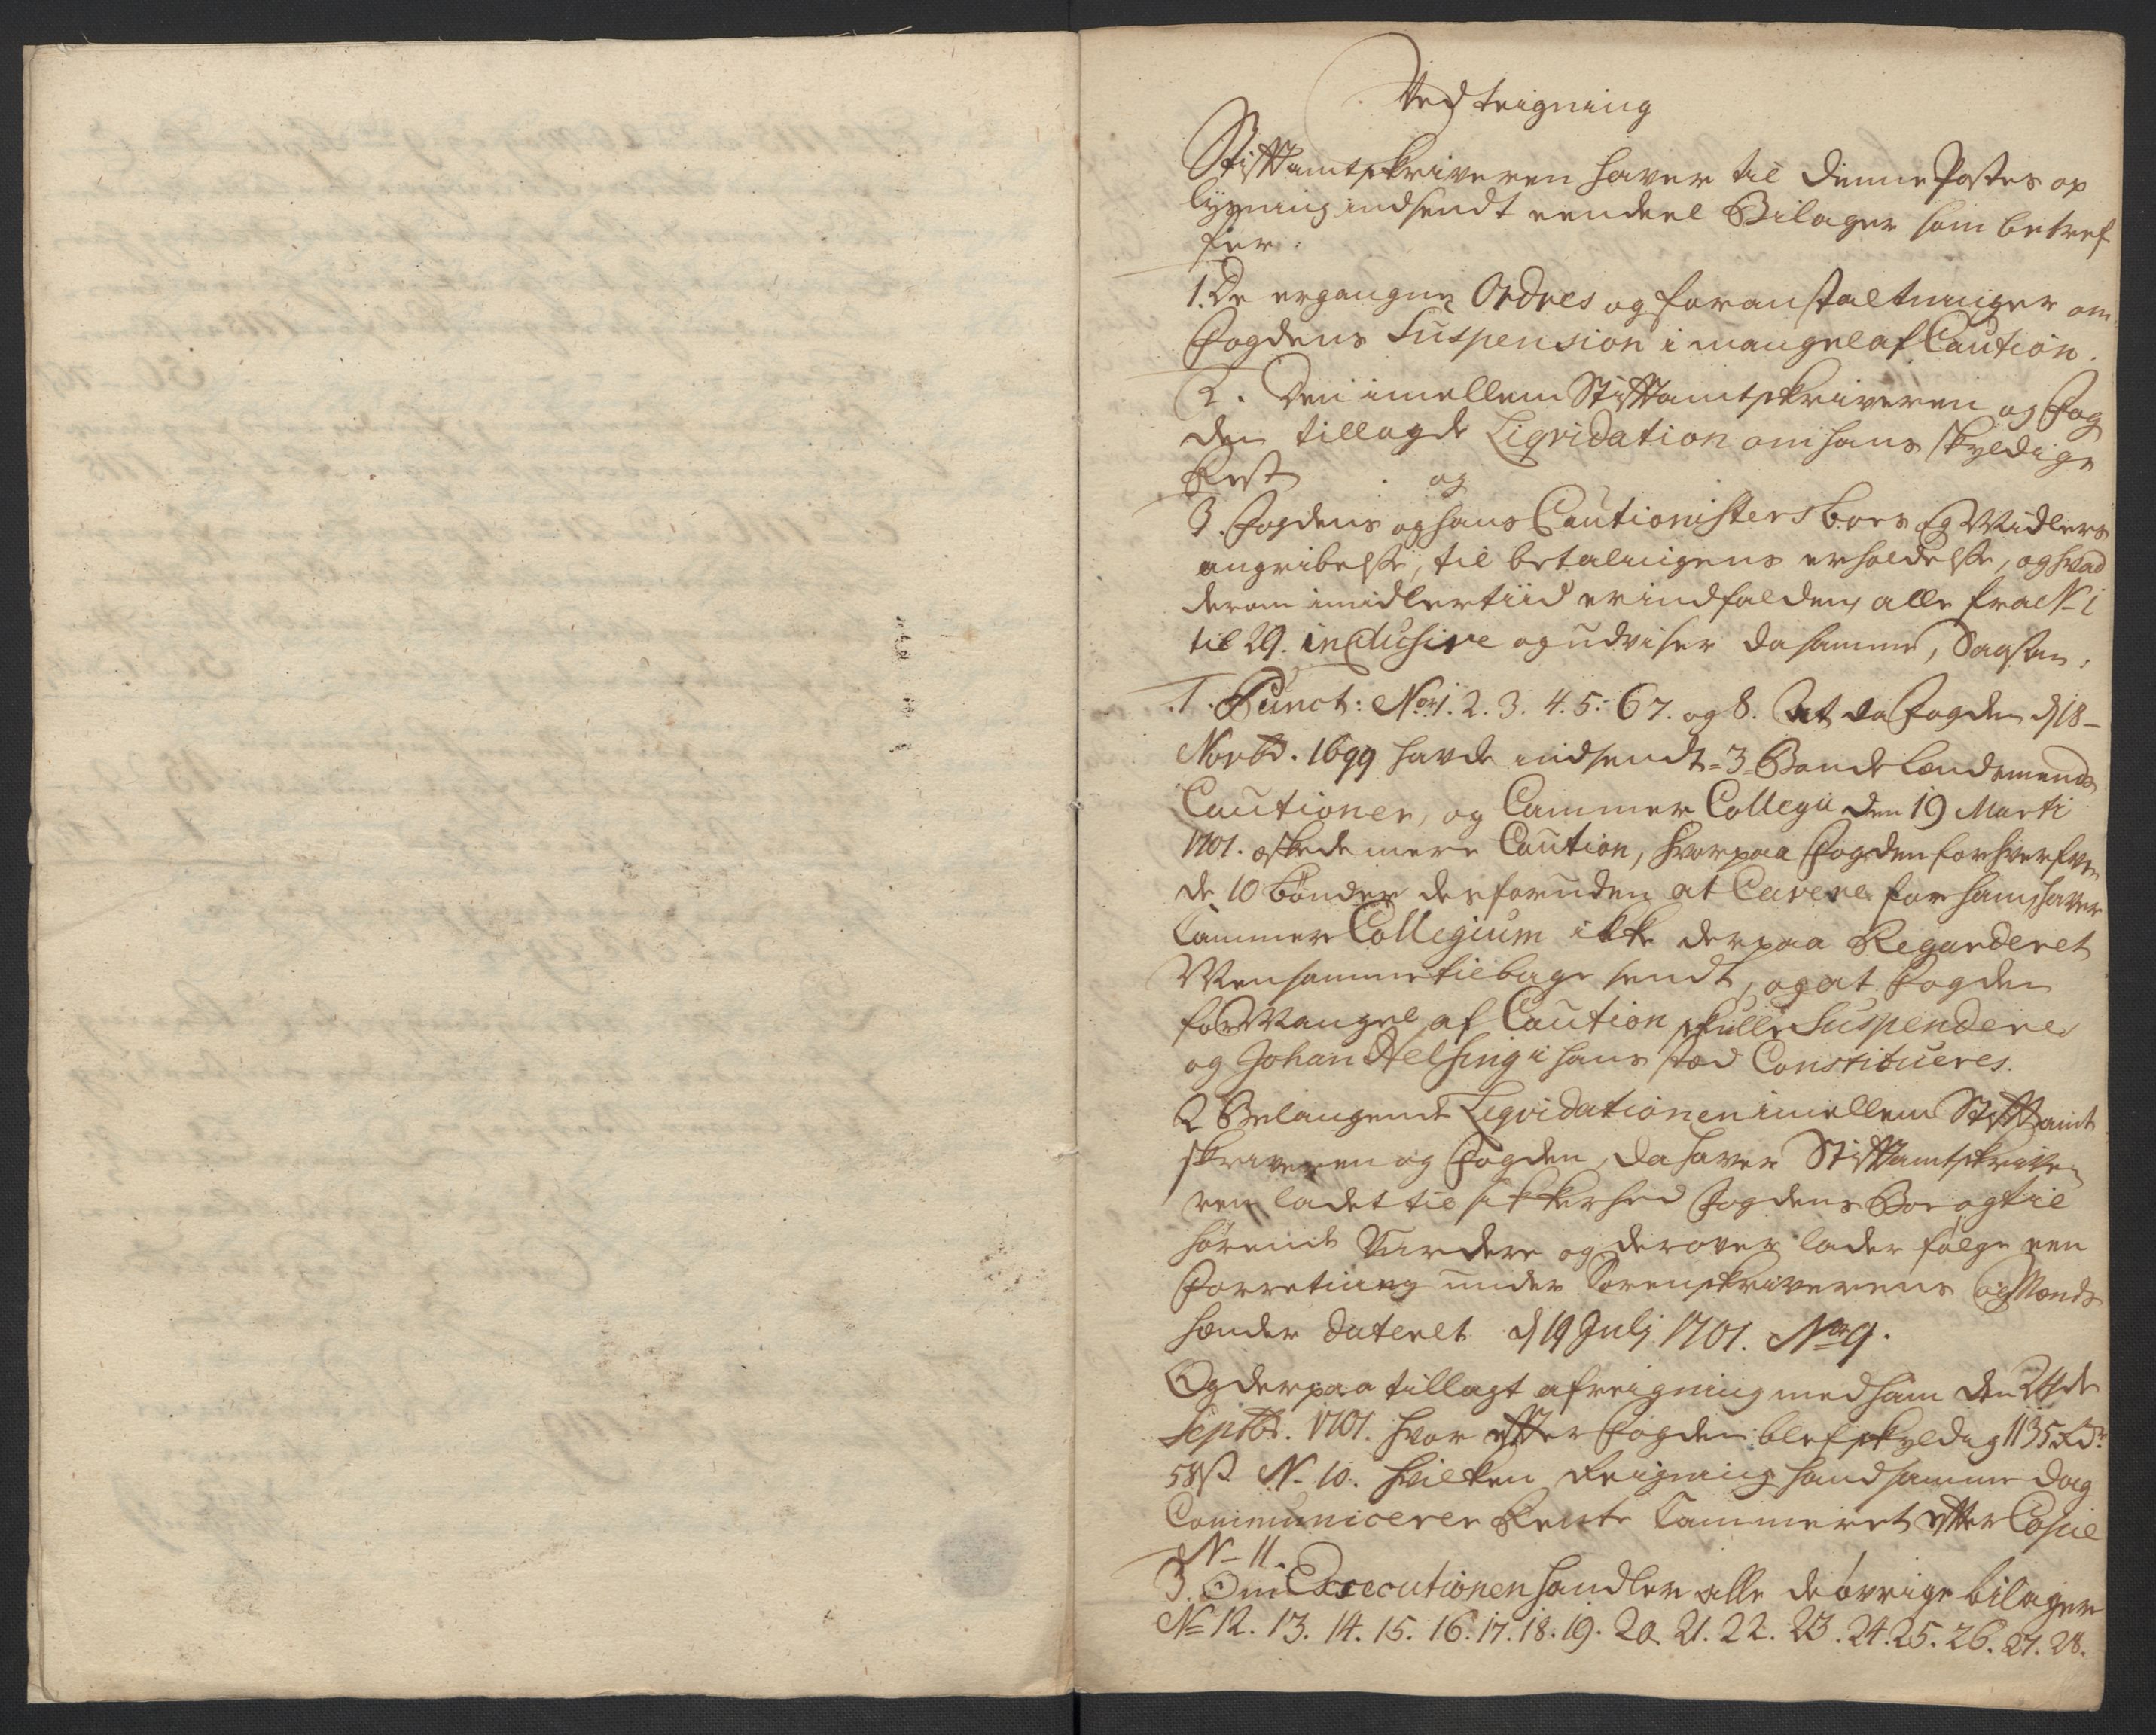 Ved teigning
Stifftamtskriveren haver til denne Postes op
lysning indsendt eendeel Bilager som betref
fer:
1. De ergangne Ordres og foranstaltninger om
Fogdens Suspension i mangel af Caution.
2. Den imellem Stifftamtskriveren og Fog
den tillagde Liqvidation om hans skyldige
Rest og
3. Fogdens og hans Cautionisters boes og Midlers
angribelse, til betalingens erholdelse, og hvad
derom imidlertiid er indfalden, alle fra No 1
til 29. inclusive og udviser da samme, Sagen.
1. Punct: No 1. 2. 3. 4. 5. 6 7. og 8. At da Fogden d 18
Novbr. 1699 havde indsendt 3 Bonde Lendsmends
Cautioner, og Cammer Collegii den 19 Marti
1701. eskede mere Caution, hvorpaa Fogden forhverfve
de 10 bönder desforuden at Cavere for ham, haver
Cammer Collegium ikke derpaa Regarderet
Men samme tilbage sendt, og at Fogden
for Mangel af Caution skulle Suspenderes
og Johan Helsing i hans sted Constitueres.
2 Belangende Liqvidationen imellem Stifftamt
skriveren og Fogden, da haver Stifftamtskrive
ren ladet til sikkerhed Fogdens Boe og til
hörende Vurdere og derover lader fölge een
Forretning under Sorenskriverens og Mends
hender dateret d 19 Julj 1701. No 9.
Og derpaa tillagt afreigning med ham den 24de
Septbr. 1701. hvor effter Fogden blef skyldig 1135 Rdr
58 s No 10. hvilken Reigning hand samme dag
Communicerer Rente Cammeret effter Copie
No 11.
3. Om Executionen handler alle de övrige bilager
No 12. 13. 14. 15. 16. 17. 18. 19. 20. 21. 22. 23. 24. 25. 26. 27. 28.